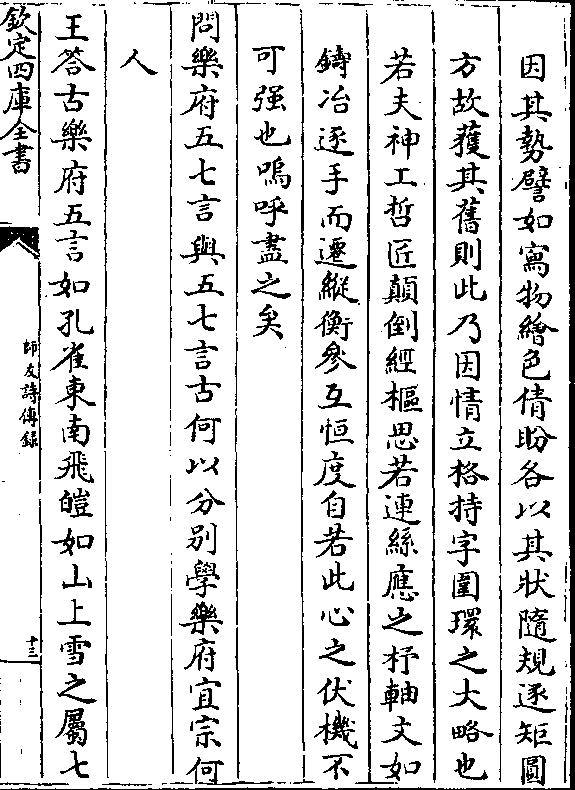 因其勢譬如寫物繪色倩盼各以其狀隨規逐矩圓
方故獲其舊則此乃因情立格持字圍環之大略也
若夫神工哲匠顛倒經樞思若連絲應之杼軸文如
鑄冶逐手而遷縱衡參互恒度自若此心之伏機不
可强也嗚呼盡之矣
問樂府五七言與五七言古何以分别學樂府宜宗何
人
王答古樂府五言如孔雀東南飛皚如山上雪之屬七
欽定四庫全書
師友詩傳錄
十三